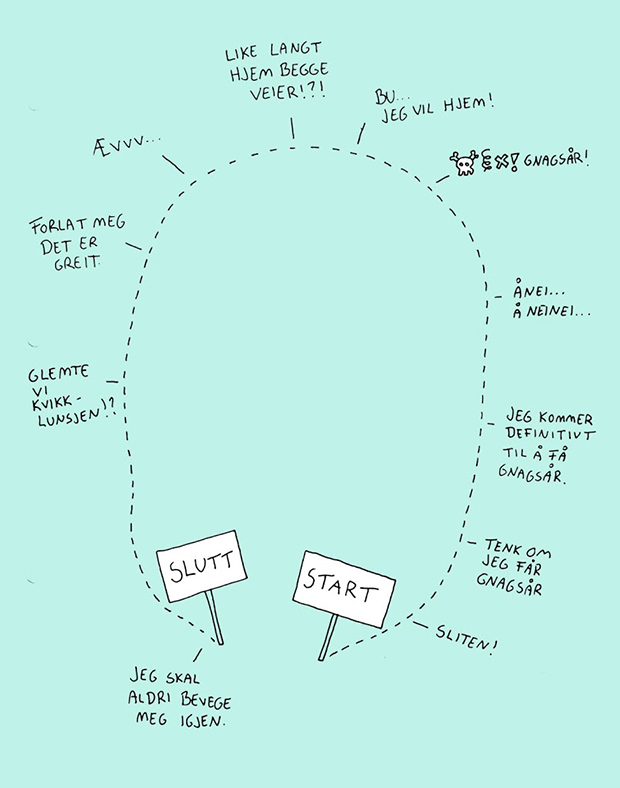 LIKE LANGT
HJEM BEGGE
VEIER!?!
BU...
JEG VIL HJEM!
GNAGSÅR!
ÅNEI...
Å NEINEI...
JEG KOMMER
DEFINITIVT
TIL Å FÅ
GNAGSÅR.
TENK OM
JEG FÅR
GNAGSÅR
SLITEN!
START
SLUTT
JEG SKAL
ALDRI BEVEGE
MEG IGJEN.
GLEMTE
VI
KVIKK-
LUNSJEN!?
FORLAT MEG
DET ER
GREIT.
ÆVVV...